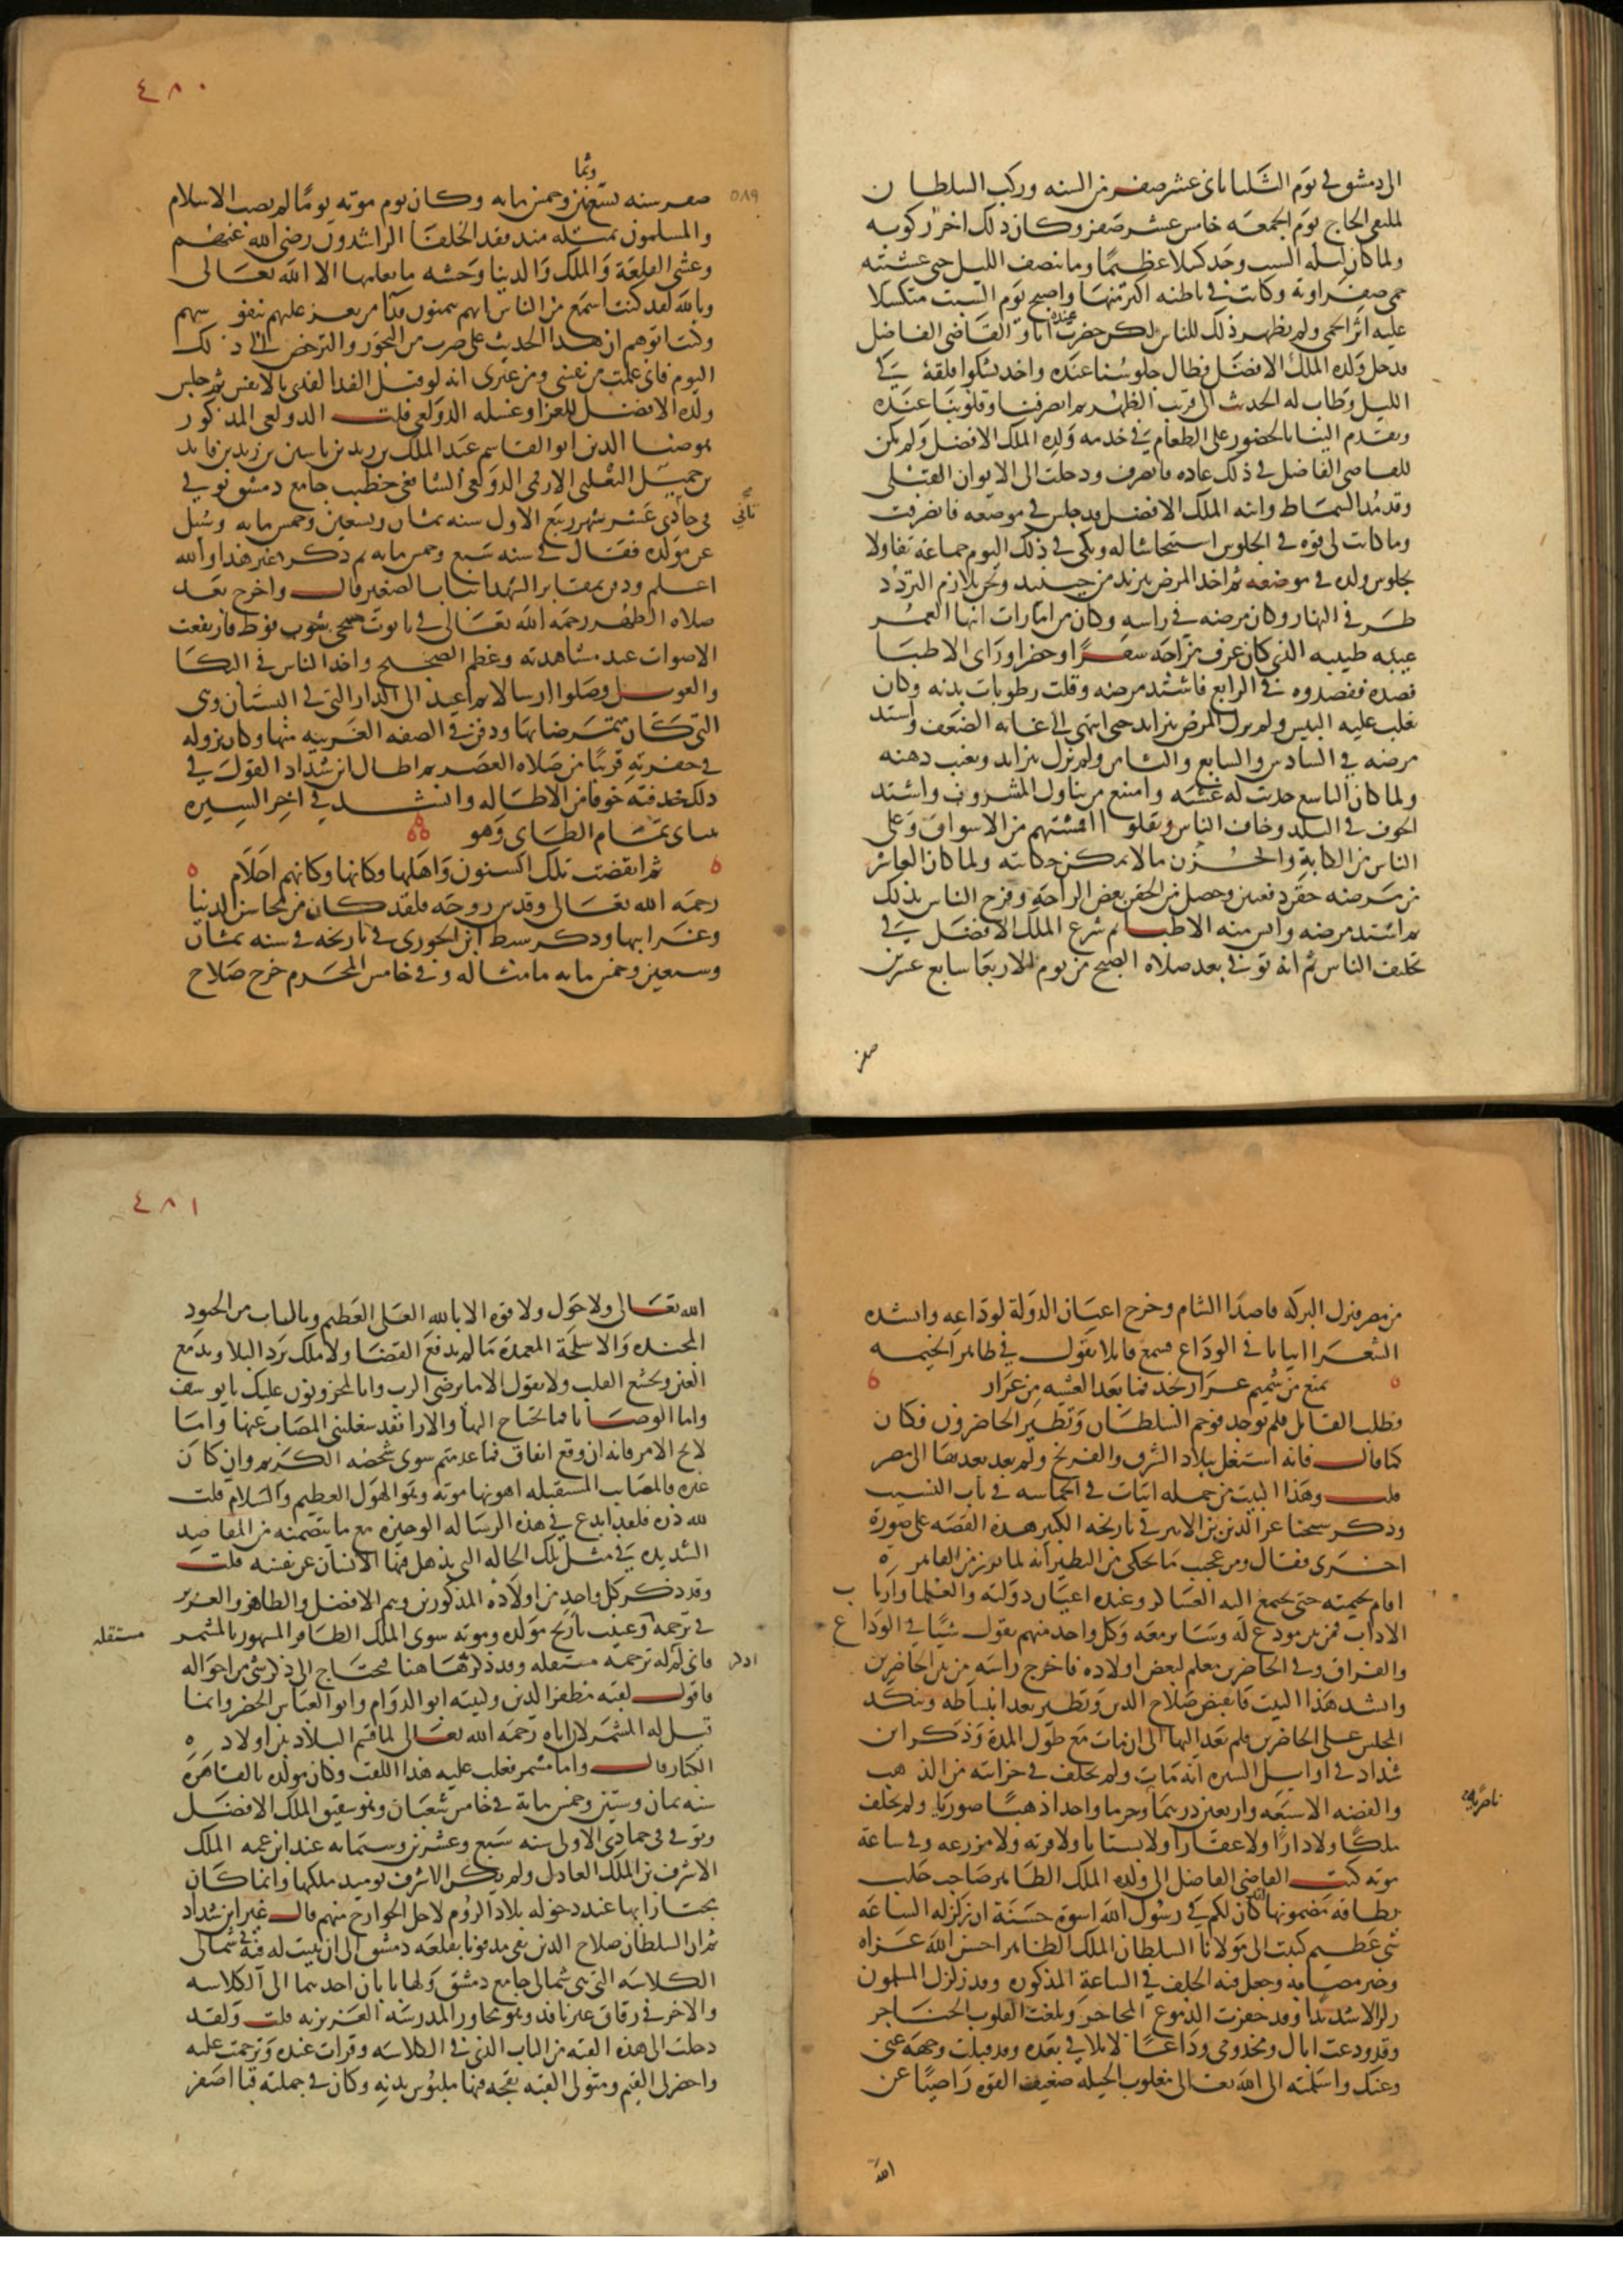 الى دمشق في يوم الثلثا ثاني عشر صفر من السنه وركب السلطان
لملتقى الحاج يوم الجمعه خامس عشر صفر وكان ذلك اخر ركوبه
ولما كان ليله السبت وجد كسلا عظيمًا وما تنصف الليل حتى غشيته
حمى صفراوية وكانت في باطنه اكثر منها واصبح يوم السبت متكسلا
عليه اثر الحمى ولم يظهر ذلك للناس لكن حضرت عنده انا والقاضى الفاضل
فدخل ولده الملك الافضل فطال جلوسنا عنده واخد يشكوا قلقه في
الليل وطاب له الحديث الى قريب الظهر ثم انصرفنا وقلوبنا عنده
وتقدم الينا بالحضور على الطعام في خدمه ولده الملك الافضل ولم يكن
للقاضي الفاضل في ذلك عاده فانصرف ودخلت الى الايوان القبلى
وقد مُد السماط وابنه الملك الافضل قد جلس في موضعه فانصرفت
وما كانت لى قوه في الجلوس استيحاشا له وبكى في ذلك اليوم جماعة تفاولا
بجلوس ولده في موضعه ثم اخد المرض يتزيد من حينيد ونحن نلازم التردد
طرفي النهار وكان مرضه في راسه وكان من امارات انتها العمر
غيبه طبيبه الذي كان عرف مزاجه سفرًا وحضرا وراى الاطبا
فصده ففصدوه في الرابع فاشتد مرضه وقلت رطوبات بدنه وكان
يغلب عليه اليبس ولم يزل المرض يتزايد حتى انتهى الى غايه الضعف واشتد
مرضه في السادس والسابع والثامن ولم يزل يتزايد ويغيب ذهنه
ولما كان التاسع حدثت له غشيه وامتنع من تناول المشروب واشتد
الخوف في البلد وخاف الناس ونقلوا اقمشتهم من الاسواق وعلى
الناس من الكابة والحزن ما لا يمكن حكايته ولما كان العاشر
من مرضه حقن دفعتين وحصل من الحقن بعض الراحة وفرح الناس بذلك
ثم اشتد مرضه وايس منه الاطبا ثم شرع الملك الافضل في
تحليف الناس ثم انه توفي بعد صلاه الصبح من يوم الاربعا سابع عشرين
صفر
٤٨٠
وثما
٥٨٩
صفر سنه تسع نين وخمس مايه وكان يوم موته يومًا لم يصب الاسلام
والمسلمون بمثله مند فقد الخلفا الراشدون رضي الله عنهم
وغشى القلعة والملك والدنيا وحشه ما يعلمها الا الله تعالى
وبالله لقد كنت اسمع من الناس انهم يتمنون فدا من يعز عليهم بنفوسهم
وكنت اتوهم ان هدا الحديث على ضرب من التجوز والترخص الى ذلك
اليوم فاني علمت من نفسي ومن غيرى انه لو قبل الفدا لفدى بالانفس ثم جلس
ولده الافضل للعزا وغسله الدولعي قلت الدولعي المدكور
هو ضيا الدين ابو القاسم عبد الملك بن زيد بن ياسين بن زيد بن قايد
بن جميل الثعلبي الارقمي الدولعي الشافعي خطيب جامع دمشق توفي
ثاني
في حادي عشر شهر ربيع الاول سنه ثمان وتسعين وخمس مايه وسُئل
عن مولده فقال في سنه سبع وخمس مايه ثم ذكر اغير هذا والله
اعلم ودفن بمقابر الشهدا بباب الصغير قال واخرج بعد
صلاه الظهر رحمه الله تعالى في تابوت مسجى بثوب فوط فارتفعت
الاصوات عند مشاهدته وعظم الضجيج واخد الناس في البكا
والعويل وصلوا ارسالا ثم اعيد الى الدار التي في البستان وهي
التي كان متمرضا بها ودفن في الصفه الغربيه منها وكان نزوله
في حفرته قريبًا من صلاه العصر ثم اطال ابن شداد القول في
ذلك فحذفته خوفا من الاطاله وانشد في اخر السيره
بيت ابي تمام الطاى وهو
ثم انقضت تلك السنون واهلها وكانها وكانهم احلام
رحمه الله تعالى وقدس روحه فلقد كان من محاسن الدنيا
وغرايبها ودكر سبط ابن الجوزى في تاريخه في سنه ثمان
وسبعين وخمس مايه ما مثاله وفي خامس المحرم خرج صلاح
من مصر فنزل البركه قاصدًا الشام وخرج اعيان الدولة لوداعه وانشده
الشعرا ابياتا في الوداع فسمع قايلا يقول في ظاهر الخيمه
تمتع من شميم عرار نجد فما بعد العشيه من عرار
فطلب القايل فلم يوجد فوجم السلطان وتطير الحاضرون فكان
كما قال فانه اشتغل ببلاد الشرق والفرنج ولم يعد بعدها الى مصر
قلت وهذا البيت من جمله ابيات في الحماسه في باب النسيب
وذكر شيخنا عز الدين بن الاثير في تاريخه الكبير هذه القصه على صورة
اخرى فقال ومن عجيب ما يحكى من التطير انه لما برز من القاهره
اقام بخيمته حتى يجتمع اليه العساكر وعنده اعيان دولته والعلما وارباب
الاداب فمن بين مودع له وساير معه وكل واحد منهم يقول شيًا في الوداع
والفراق وفي الحاضرين معلم لبعض اولاده فاخرج راسه من بين الحاضرين
وانشد هذا البيت فانقبض صلاح الدين وتطير بعد انبساطه وتنكد
المجلس على الحاضرين فلم يعد اليها الى ان مات مع طول المدة وذكر ابن
شداد في اوايل السيره انه مات ولم يخلف في خزانته من الذهب
ناصرية
والفضه الا سبعه واربعين درهما وجرما واحدا ذهبًا صوريا ولم يخلف
ملكًا ولا دارًا ولا عقارا ولا بستانا ولا قريه ولا مزرعه وفي ساعة
موته كتب القاضي الفاضل الى ولده الملك الظاهر صاحب حلب
بطاقه مضمونها لقد كان لكم في رسول الله اسوة حسنة ان زلزله الساعه
شي عظيم كتبت الى مولانا السلطان الملك الظاهر احسن الله عزاه
وجبر مصابه وجعل فيه الخلف في الساعة المذكوره وقد زلزل المسلمون
زلزالا شديدًا وقد حفرت الدموع المحاجر وبلغت القلوب الحناجر
وقد ودعت اباك ومخدومي وداعًا لا تلاقي بعده وقد قبلت وجهه عني
وعنك واسلمته الى الله تعالى مغلوب الحيله ضعيف القوه راضيًا عن
الله
٤٨١
الله تعالى ولا حول ولا قوه الا بالله العلى العظيم وبالباب من الجنود
المجنده والاسلحة المعمدة ما لم يدفع القضا ولا ملك يرد البلا ويدمع
العين ويخشع القلب ولا نقول الا ما يرضى الرب وانا لمحزونون عليك يا يوسف
واما الوصايا فما تحتاج اليها والارا فقد شغلني المصاب عنها واما
لايح الامر فانه ان وقع اتفاق فما عدمتم سوى شخصه الكريم وان كان
غيره فالمصايب المستقبله اهونها موته وهو الهول العظيم والسلام قلت
لله دره فلقد ابدع في هذه الرساله الوجيزه مع ما يتضمنه من المقاصد
السديده في مثل تلك الحاله التى يذهل فيها الانسان عن نفسه قلت
وقد ذكر كل واحد من اولاده المذكورين وهم الافضل والظاهر والعزيز
في ترجمة وعينت تاريخ مولده وموته سوى الملك الظافر المشهور بالمشمر
مستقله
اذكر
فاني لم له ترجمه مستقله وقد ذكرتها هنا فيحتاج الى ذكر شي من احواله
فاقول لقبه مظفر الدين وكنيته ابو الدوام وابو العباس الخضر وانما
قيل له المشمر لان اباه رحمه الله تعالى لما قسم البلاد بين اولاده
الكبار قال وانا مشمر فغلب عليه هذا اللقب وكان مولده بالقاهره
سنه ثمان وستين وخمس مائة في خامس شعبان وهو شقيق الملك الافضل
وتوفي في جمادى الاولى سنه سبع وعشرين وستمايه عند ابن عمه الملك
الاشرف بن الملك العادل ولم يكن الاشرف يوميد ملكها وانما كان
مجتازا بها عند دخوله بلاد الروم لاجل الخوارزميه قال غير ابن شداد
ثم ان السلطان صلاح الدين بقى مدفونا بقلعه دمشق الى ان بنيت له قبه في شمالى
الكلاسه التى هى شمالى جامع دمشق ولها بابان احدهما الى الكلاسه
والاخر في زقاق غير نافد وهو مجاور المدرسه العزيزيه قلت ولقد
دخلت الى هذه القبه من الباب الذي في الكلاسه وقرات عنده وترحمت عليه
واحضر لى القيم ومتولى القبه بقجه فيها ملبوس بدنه وكان في جملته قبا اصفر